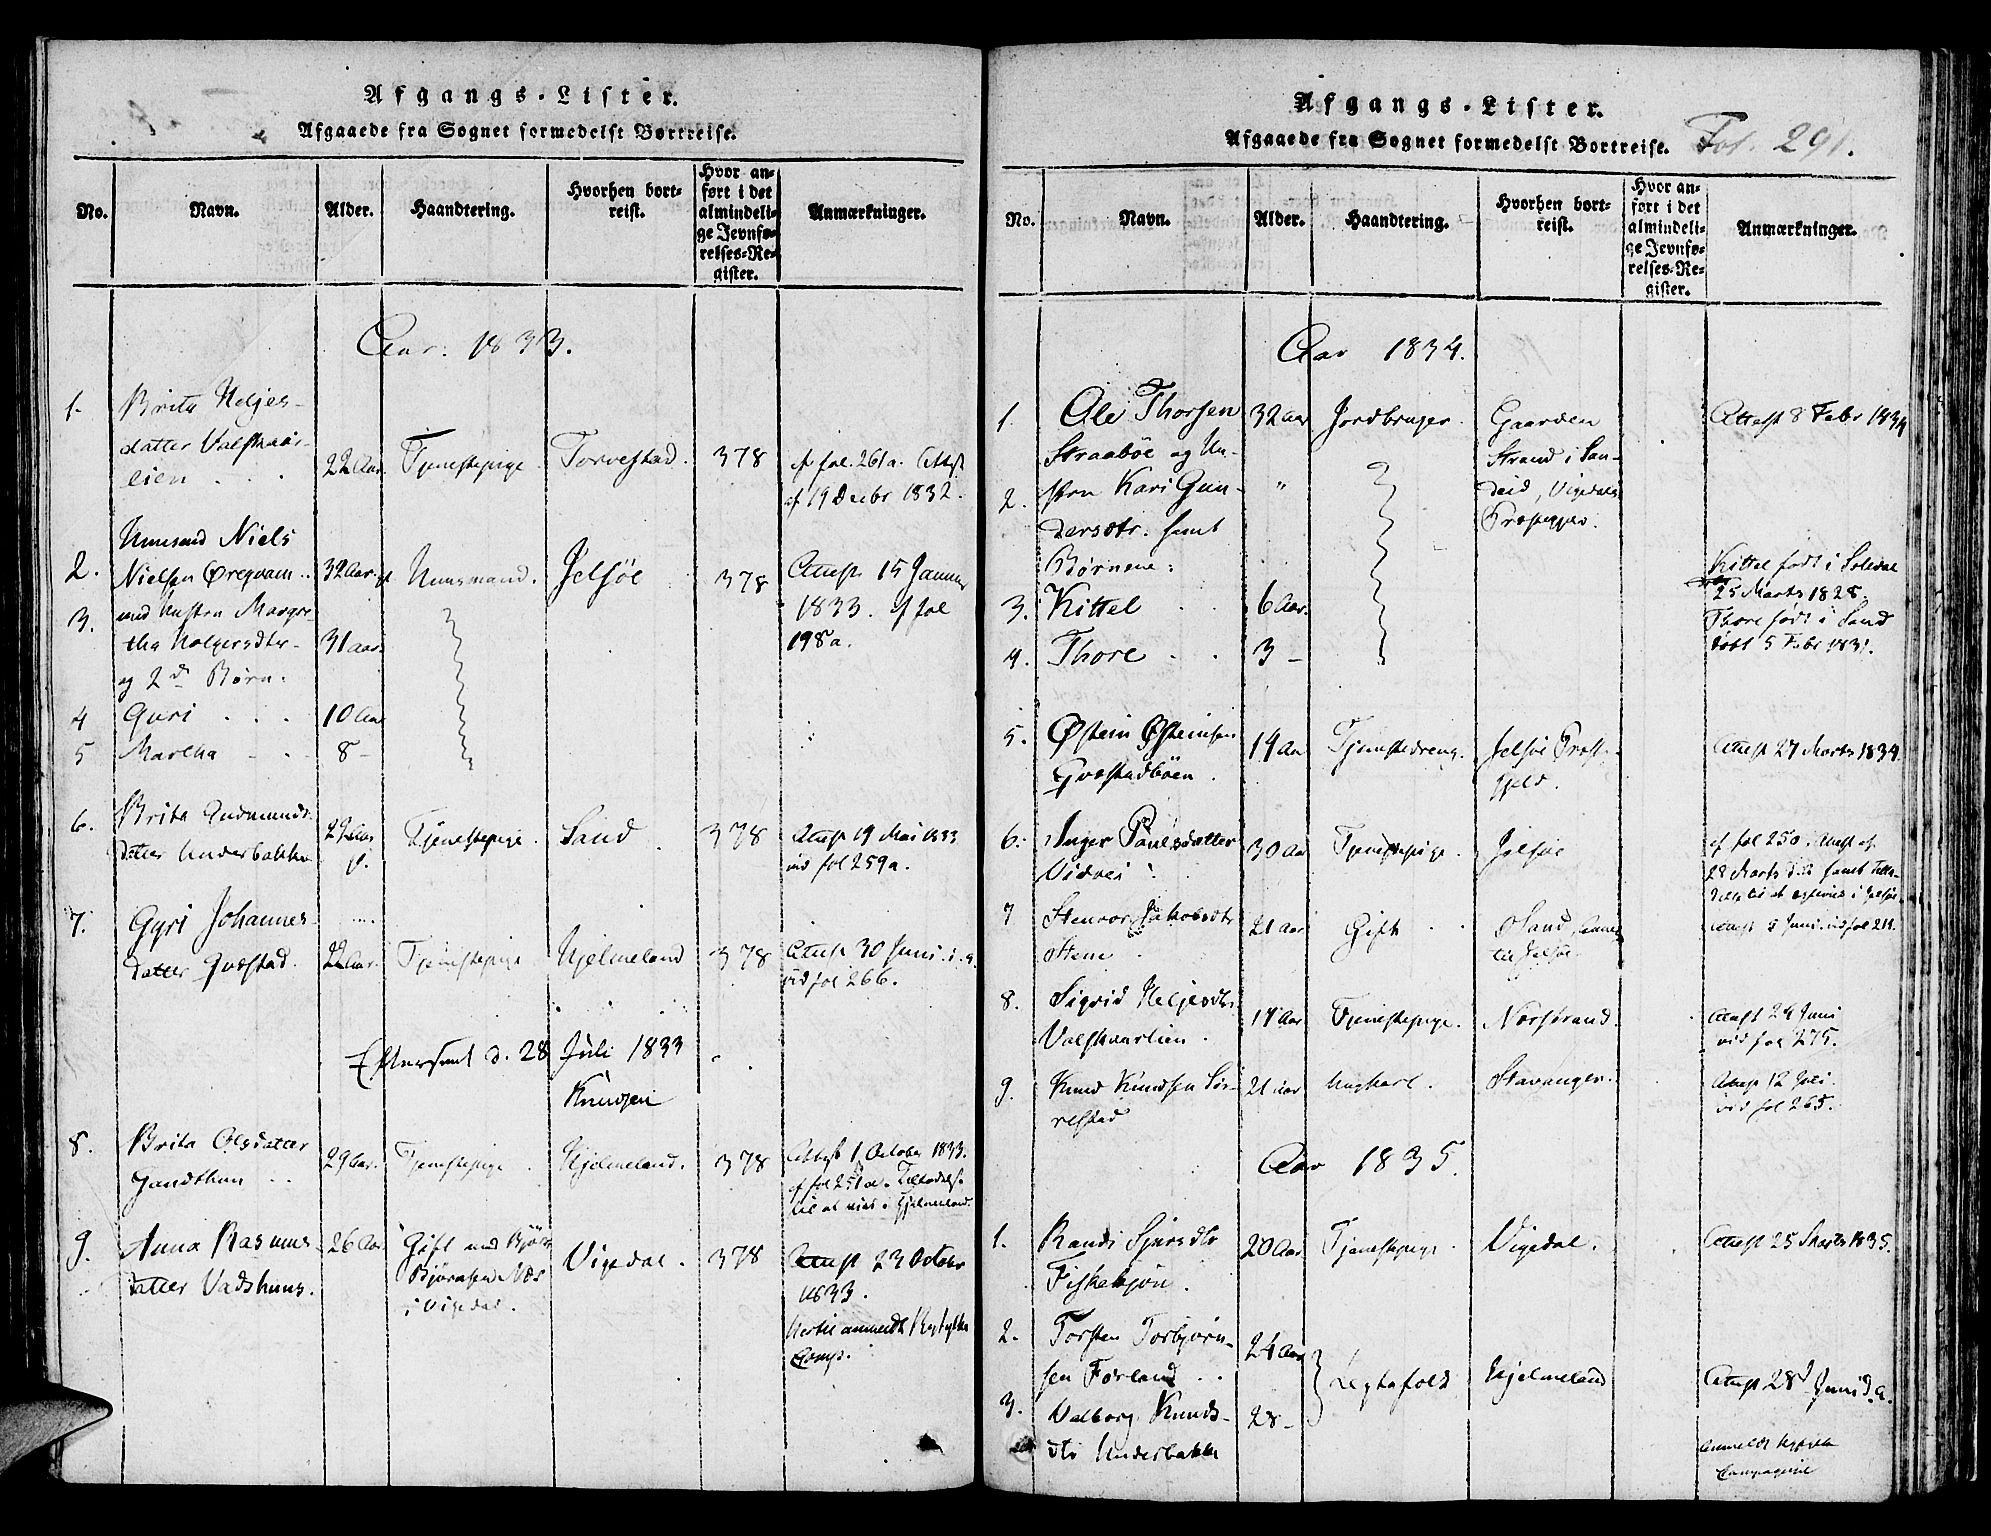 Afgangs-Lister.
Afgaaede fra Sognet formedelst Bortreise.
No. Navn. Alder. Haandtering. Hvorhen bortreist. Hvor anført i det almindelige Jevnførelses-Register. Anmærkninger.
Aar: 1833.
1. Brita Heljes-
datter Valskaar-
lien . . . 22 Aar Tjenestepige Torvestad. 378 cf fol. 261a. Attest
af 19 Decbr 1832.
Huusmand Niels
2. Nielsen Øregvam .. 32 Aar Huusmand. Jelsøe 378 Attest 15 Januar
3. med Hustru Margre- 1833. cf fol
tha Holgersdter 31 aar 198a.
og 2de Børn.
4 Guri . . . 10 Aar
5 Martha . . . 8 –
6. Brita Gudmunds-
datter Underbakke 22 Aar Tjenestepige Sand 378 Attest 19 Mai 1833
vid fol 259a.
7. Gyri Johannes-
datter Qvæstad. 22 Aar. Tjenestepige Hjelmeland 378 Attest 30 Juni
vid fol 266.
Efterseet d. 28 Juli 1833
Knudsen
8. Brita Olsdatter
Sandthun . . 29 Aar. Tjenestepige Hjelmeland. 378 Attest 1 October 1833.
cf fol 251a. Tilladelse
til at vies i Hjelmeland
9. Anna Rasmus-
datter Vadshuus. 26 Aar Gift med
Bjørnsen Næs
i Vigedal. Vigedal. 378 Attest 23 Octobr
1833.
Comp.
Afgangs-Lister.
Afgaaede fra Sognet formedelst Bortreise.
Fol. 291.
No. Navn. Alder. Haandtering. Hvorhen bortreist. Hvor anført i det almindelige Jevnførelses-Register. Anmærkninger.
Aar 1834.
1. Ole Thorsen 32 aar Jordbruger Gaarden Attest 8 Febr 1834
Straabøe og Hu- Strand i San-
2. stru Kari Gun- " deid, Vigedals
dersdtr. samt Præstegjel.
Børnene:
3. Kittel . . 6 Aar. Kittel født i
25 Marts 1828.
4. Thore . . 3 – Thore født i Sand
døbt 5 Febr 1831.
5. Østein Østeinsen 14 Aar Tjenestedreng. Jelsøe Præste- Attest 27 Marts 1834
Qvæstadbøen . gjeld.
6. Inger Poulsdatter 30 Aar Tjenestepige. Jelsøe cf fol 250. Attest af
Vidvei 28 Marts samt
7 Jakobsdtr 21 Aar Gift . . Sand, Attest 5 Juni vid fol 211.
Stene . til Jelsøe
8. Sigrid Heljesdtr 17 Aar Tjenestepige. Norstrand. Attest 24 Juni
Valskaarlien . vid fol 275.
9. Knud Knudsen Sør- 21 aar Ungkarl. Stavanger. Attest 12 Juli
relstad vid fol 265.
Aar 1835.
1. Randi Sjursdtr 20 Aar Tjenestepige Vigedal. Attest 25 Marts 1835.
Fiskekjøn .
2. Torsten Torbjørn- 24 Aar
sen Førland . . Legtafolk Hjelmeland Attest 28 Juni d. a.
3. Valborg Knuds- 28 –
dtr Underbakke
Compagnie